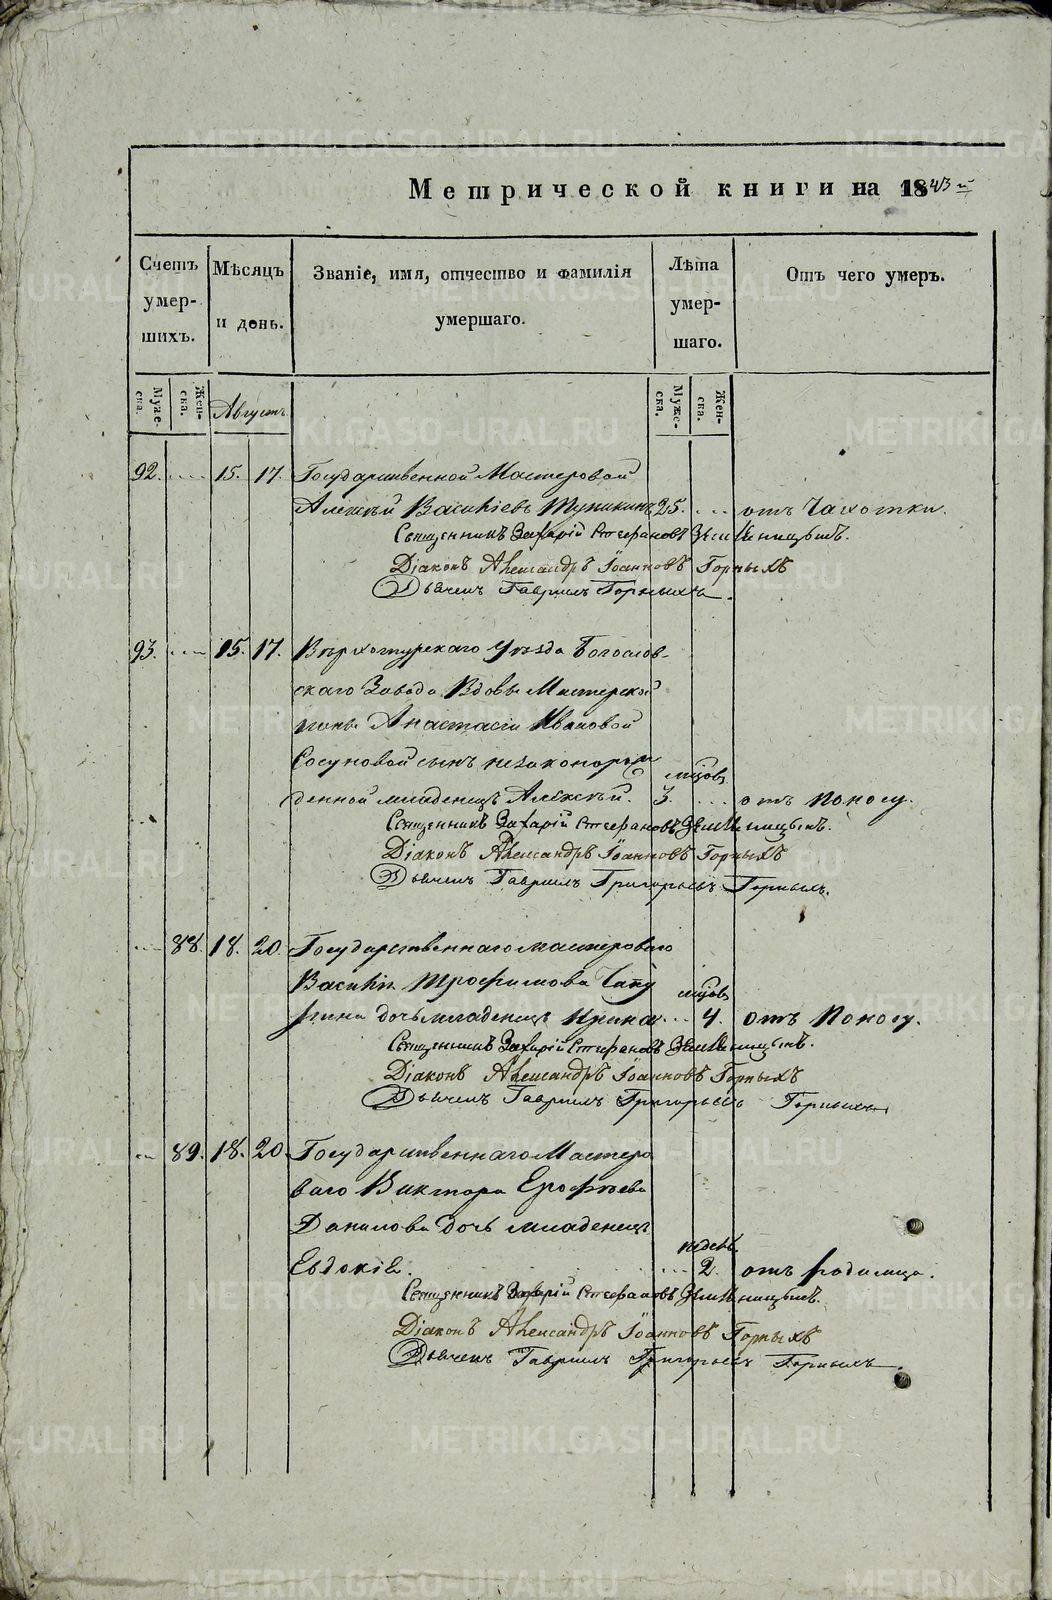 Метрической книги на 1843 й
Счетъ умер-шихъ.
Мѣсяцъ и день.
Званіе, имя, отчество и фамилія умершаго.
Лѣта умер-шаго.
Отъ чего умеръ.
Муже-ска. Жен-ска. Августъ Муже-ска. Жен-ска.
92. 15. 17. Государственной Мастеровой
Алексѣй Васильевъ Тупикинъ 25. отъ Чахотки.
Священникъ Захарій Стефановъ
Діаконъ Александръ Іоанновъ Горныхъ
Дьячекъ Гавріилъ Горныхъ.
93. 15. 17. Верхотурскаго Уѣзда Богослов-
скаго Завода Вдовы Мастерской
жены Анастасіи Ивановой
Сосуновой сынъ незаконорож
мѣсцовъ
денной младенецъ Алексѣй. 3. отъ Поносу.
Священникъ Захарій Стефановъ
Діаконъ Александръ Іоанновъ Горныхъ
Дьячекъ Гавріилъ Григорьевъ Горныхъ.
88. 18. 20. Государственнаго мастероваго
Василія Трофимова
мѣсцовъ
дочь младенецъ Ирина 4. отъ Поносу.
Священникъ Захарій Стефановъ
Діаконъ Александръ Іоанновъ Горныхъ
Дьячекъ Гавріилъ Григорьевъ Горныхъ
89. 18. 20. Государственнаго Мастеро
ваго Виктора Ерофѣева
Данилова дочь младенецъ
недель
Евдокія. 2. отъ родимца.
Священникъ Захарій Стефановъ
Діаконъ Александръ Іоанновъ Горныхъ
Дьячекъ Гавріилъ Григорьевъ Горныхъ.
METRIKI.GASO-URAL.RU